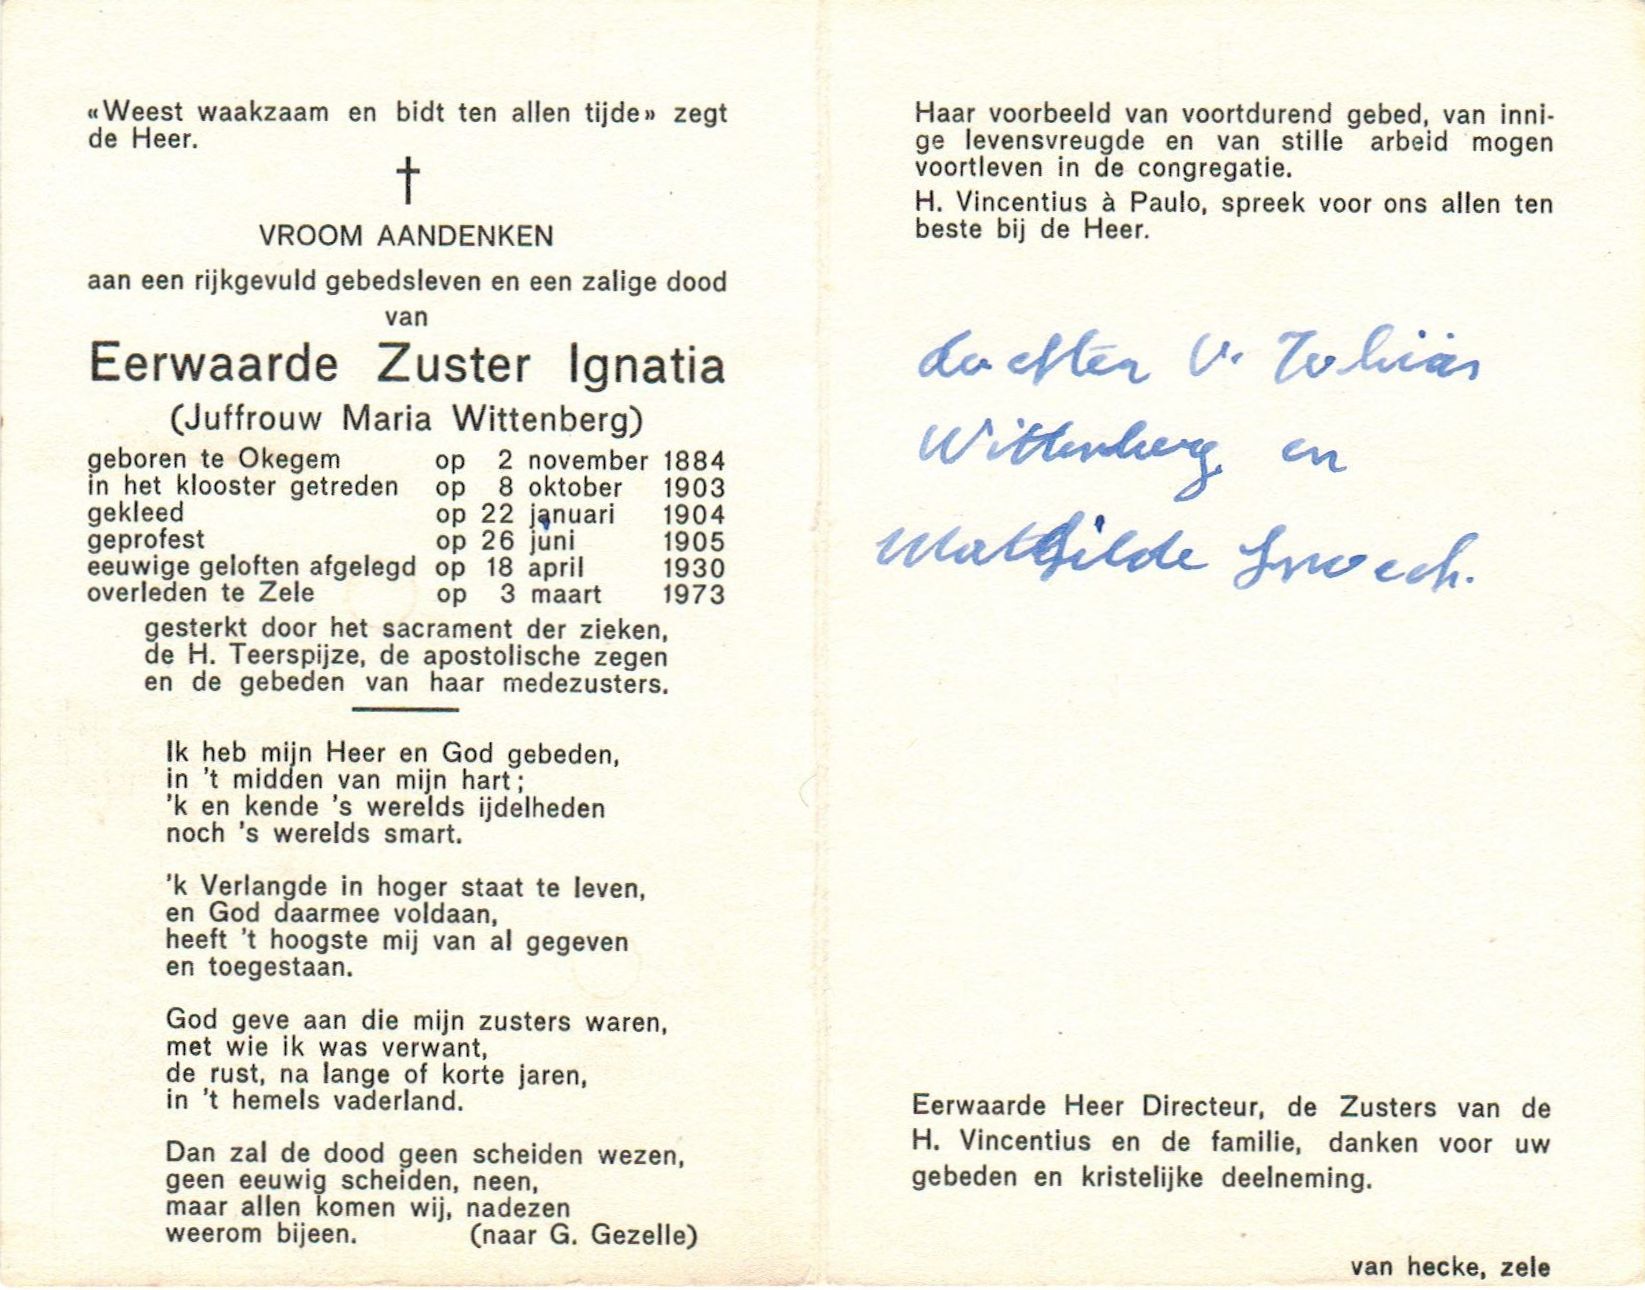 «Weest waakzaam en bidt ten allen tijde» zegt
de Heer.
VROOM AANDENKEN
aan een rijkgevuld gebedsleven en een zalige dood
van
Eerwaarde Zuster Ignatia
(Juffrouw Maria Wittenberg)
geboren te Okegem op 2 november 1884
in het klooster getreden op 8 oktober 1903
gekleed op 22 januari 1904
geprofest op 26 juni 1905
eeuwige geloften afgelegd op 18 april 1930
overleden te Zele op 3 maart 1973
gesterkt door het sacrament der zieken,
de H. Teerspijze, de apostolische zegen
en de gebeden van haar medezusters.
Ik heb mijn Heer en God gebeden,
in 't midden van mijn hart;
'k en kende 's werelds ijdelheden
noch 's werelds smart.
'k Verlangde in hoger staat te leven,
en God daarmee voldaan,
heeft 't hoogste mij van al gegeven
en toegestaan.
God geve aan die mijn zusters waren,
met wie ik was verwant,
de rust, na lange of korte jaren,
in 't hemels vaderland.
Dan zal de dood geen scheiden wezen,
geen eeuwig scheiden, neen,
maar allen komen wij, nadezen
weerom bijeen. (naar G. Gezelle)
Haar voorbeeld van voortdurend gebed, van inni-
ge levensvreugde en van stille arbeid mogen
voortleven in de congregatie.
H. Vincentius à Paulo, spreek voor ons allen ten
beste bij de Heer.
dochter V. Tobias
Wittenberg en
Mathilde
Eerwaarde Heer Directeur, de Zusters van de
H. Vincentius en de familie, danken voor uw
gebeden en kristelijke deelneming.
van hecke, zele